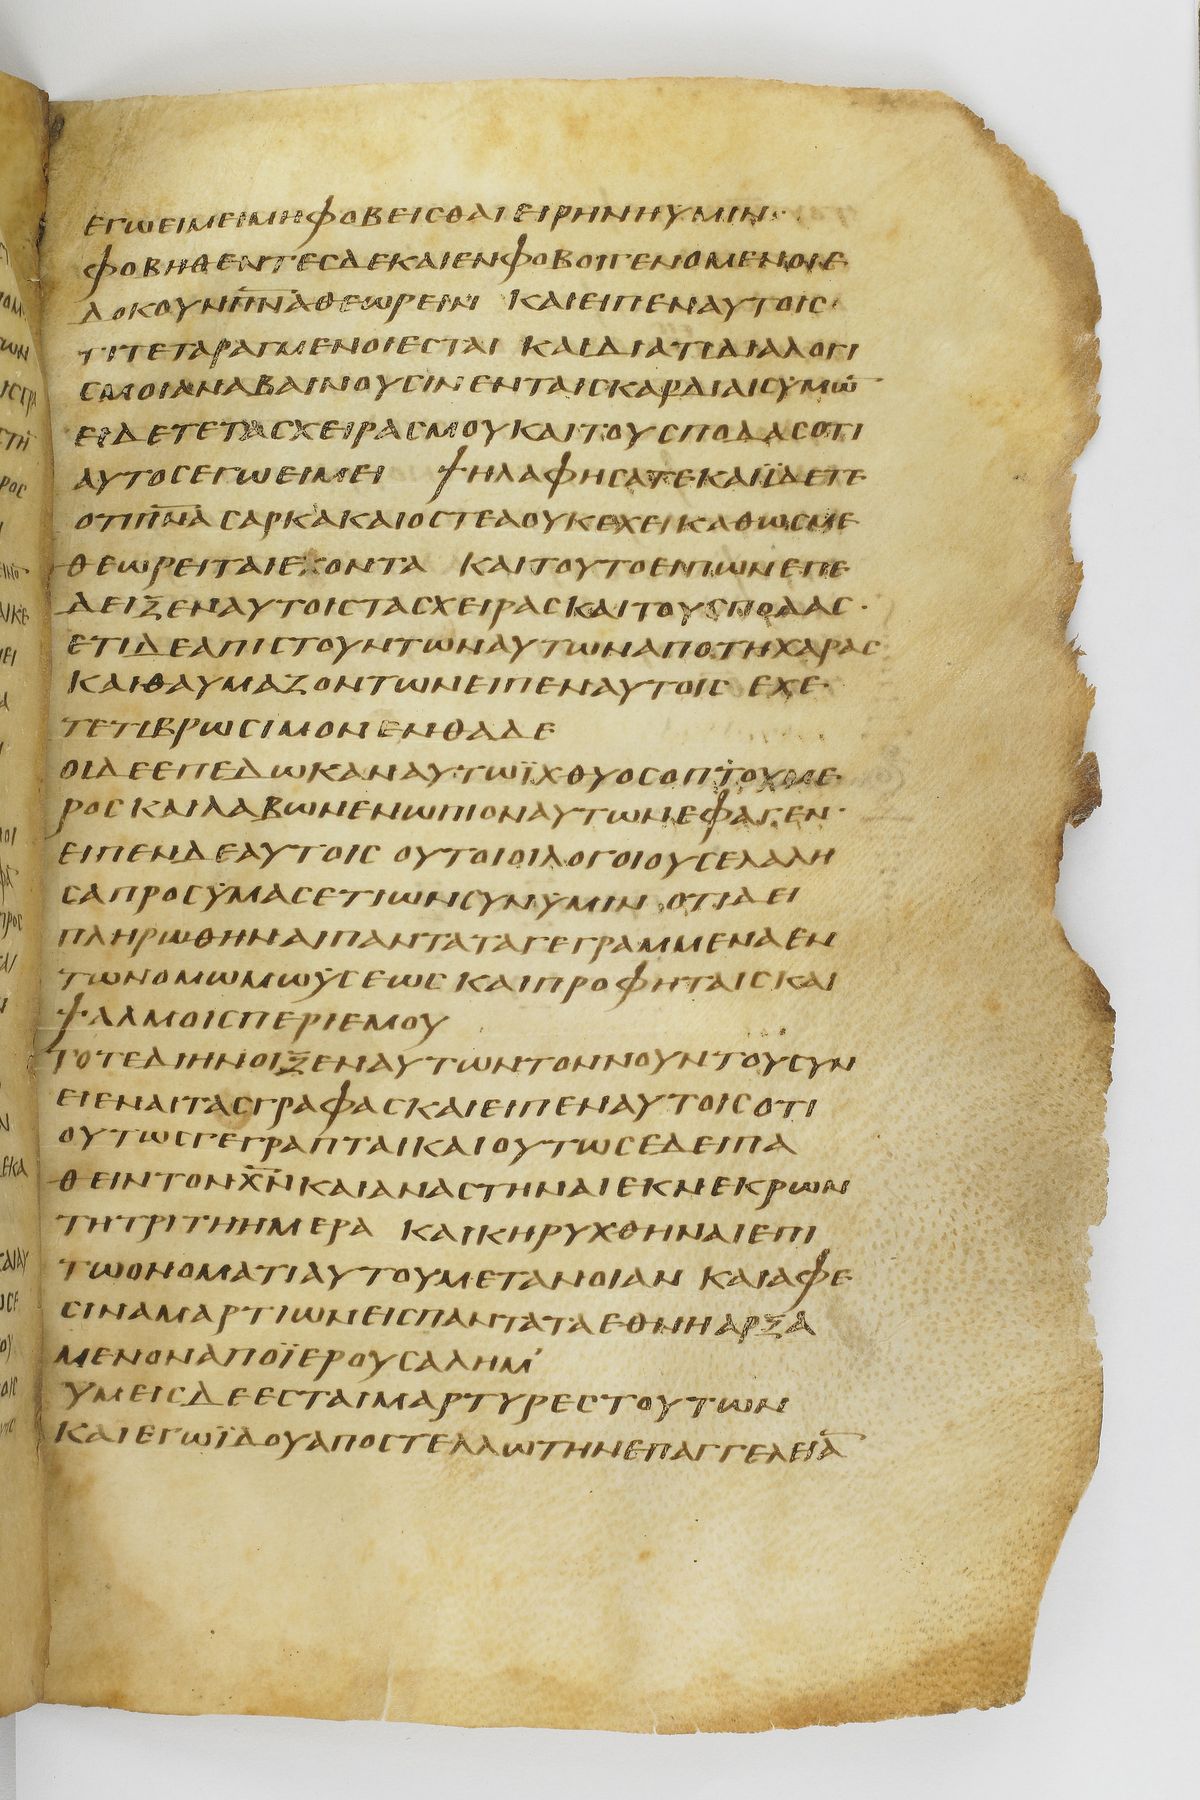 ΕΓΩΕΙΜΕΙΜΗΦΟΒΕΙΣΘΑΙΕΙΡΗΝΗΥΜΙΝ·
ΦΟΒΗΘΕΝΤΕΣΔΕΚΑΙΕΝΦΟΒΟΙΓΕΝΟΜΕΝΟΙΕ
ΔΟΚΟΥΝΠ̅Ν̅Α̅ΘΕΩΡΕΙΝ ΚΑΙΕΙΠΕΝΑΥΤΟΙΣ·
ΤΙΤΕΤΑΡΑΓΜΕΝΟΙΕΣΤΑΙ ΚΑΙΔΙΑΤΙΔΙΑΛΟΓΙ
ΣΜΟΙΑΝΑΒΑΙΝΟΥΣΙΝΕΝΤΑΙΣΚΑΡΔΙΑΙΣΥΜΩ̅
ΕΙΔΕΤΕΤΑΣΧΕΙΡΑΣΜΟΥΚΑΙΤΟΥΣΠΟΔΑΣΟΤΙ
ΑΥΤΟΣΕΓΩΕΙΜΕΙ ΨΗΛΑΦΗΣΑΤΕΚΑΙΪΔΕΤΕ
ΟΤΙΠ̅Ν̅Α̅ΣΑΡΚΑΚΑΙΟΣΤΕΑΟΥΚΕΧΕΙΚΑΘΩΣΕΜΕ
ΘΕΩΡΕΙΤΑΙΕΧΟΝΤΑ ΚΑΙΤΟΥΤΟΕΙΠΩΝΕΠΕ
ΔΕΙΞΕΝΑΥΤΟΙΣΤΑΣΧΕΙΡΑΣΚΑΙΤΟΥΣΠΟΔΑΣ·
ΕΤΙΔΕΑΠΙΣΤΟΥΝΤΩΝΑΥΤΩΝΑΠΟΤΗΧΑΡΑΣ
ΚΑΙΘΑΥΜΑΖΟΝΤΩΝΕΙΠΕΝΑΥΤΟΙΣ ΕΧΕ
ΤΕΤΙΒΡΩΣΙΜΟΝΕΝΘΑΔΕ
ΟΙΔΕΕΠΕΔΩΚΑΝΑΥΤΩΪΧΘΥΟΣΟΠΤΟΥΜΕ
ΡΟΣ ΚΑΙΛΑΒΩΝΕΝΩΠΙΟΝΑΥΤΩΝΕΦΑΓΕΝ·
ΕΙΠΕΝΔΕΑΥΤΟΙΣ ΟΥΤΟΙΟΙΛΟΓΟΙΟΥΣΕΛΑΛΗ
ΣΑΠΡΟΣΥΜΑΣΕΤΙΩΝΣΥΝΥΜΙΝ ΟΤΙΔΕΙ
ΠΛΗΡΩΘΗΝΑΙΠΑΝΤΑΤΑΓΕΓΡΑΜΜΕΝΑΕΝ
ΤΩΝΟΜΩΜΩΥΣΕΩΣ ΚΑΙΠΡΟΦΗΤΑΙΣΚΑΙ
ΨΑΛΜΟΙΣΠΕΡΙΕΜΟΥ
ΤΟΤΕΔΙΗΝΟΙΞΕΝΑΥΤΩΝΤΟΝΝΟΥΝΤΟΥΣΥΝ
ΕΙΕΝΑΙΤΑΣΓΡΑΦΑΣΚΑΙΕΙΠΕΝΑΥΤΟΙΣΟΤΙ
ΟΥΤΩΣΓΕΓΡΑΠΤΑΙΚΑΙΟΥΤΩΣΕΔΕΙΠΑ
ΘΕΙΝΤΟΝΧ̅Ν̅ΚΑΙΑΝΑΣΤΗΝΑΙΕΚΝΕΚΡΩΝ
ΤΗΤΡΙΤΗΗΜΕΡΑ ΚΑΙΚΗΡΥΧΘΗΝΑΙΕΠΙ
ΤΩΟΝΟΜΑΤΙΑΥΤΟΥΜΕΤΑΝΟΙΑΝ ΚΑΙΑΦΕ
ΣΙΝΑΜΑΡΤΙΩΝΕΙΣΠΑΝΤΑΤΑΕΘΝΗΑΡΞΑ
ΜΕΝΟΝΑΠΟΪΕΡΟΥΣΑΛΗΜ'
ΥΜΕΙΣΔΕΕΣΤΑΙΜΑΡΤΥΡΕΣΤΟΥΤΩΝ
ΚΑΙΕΓΩΪΔΟΥΑΠΟΣΤΕΛΛΩΤΗΝΕΠΑΓΓΕΛΕΙΑ̅